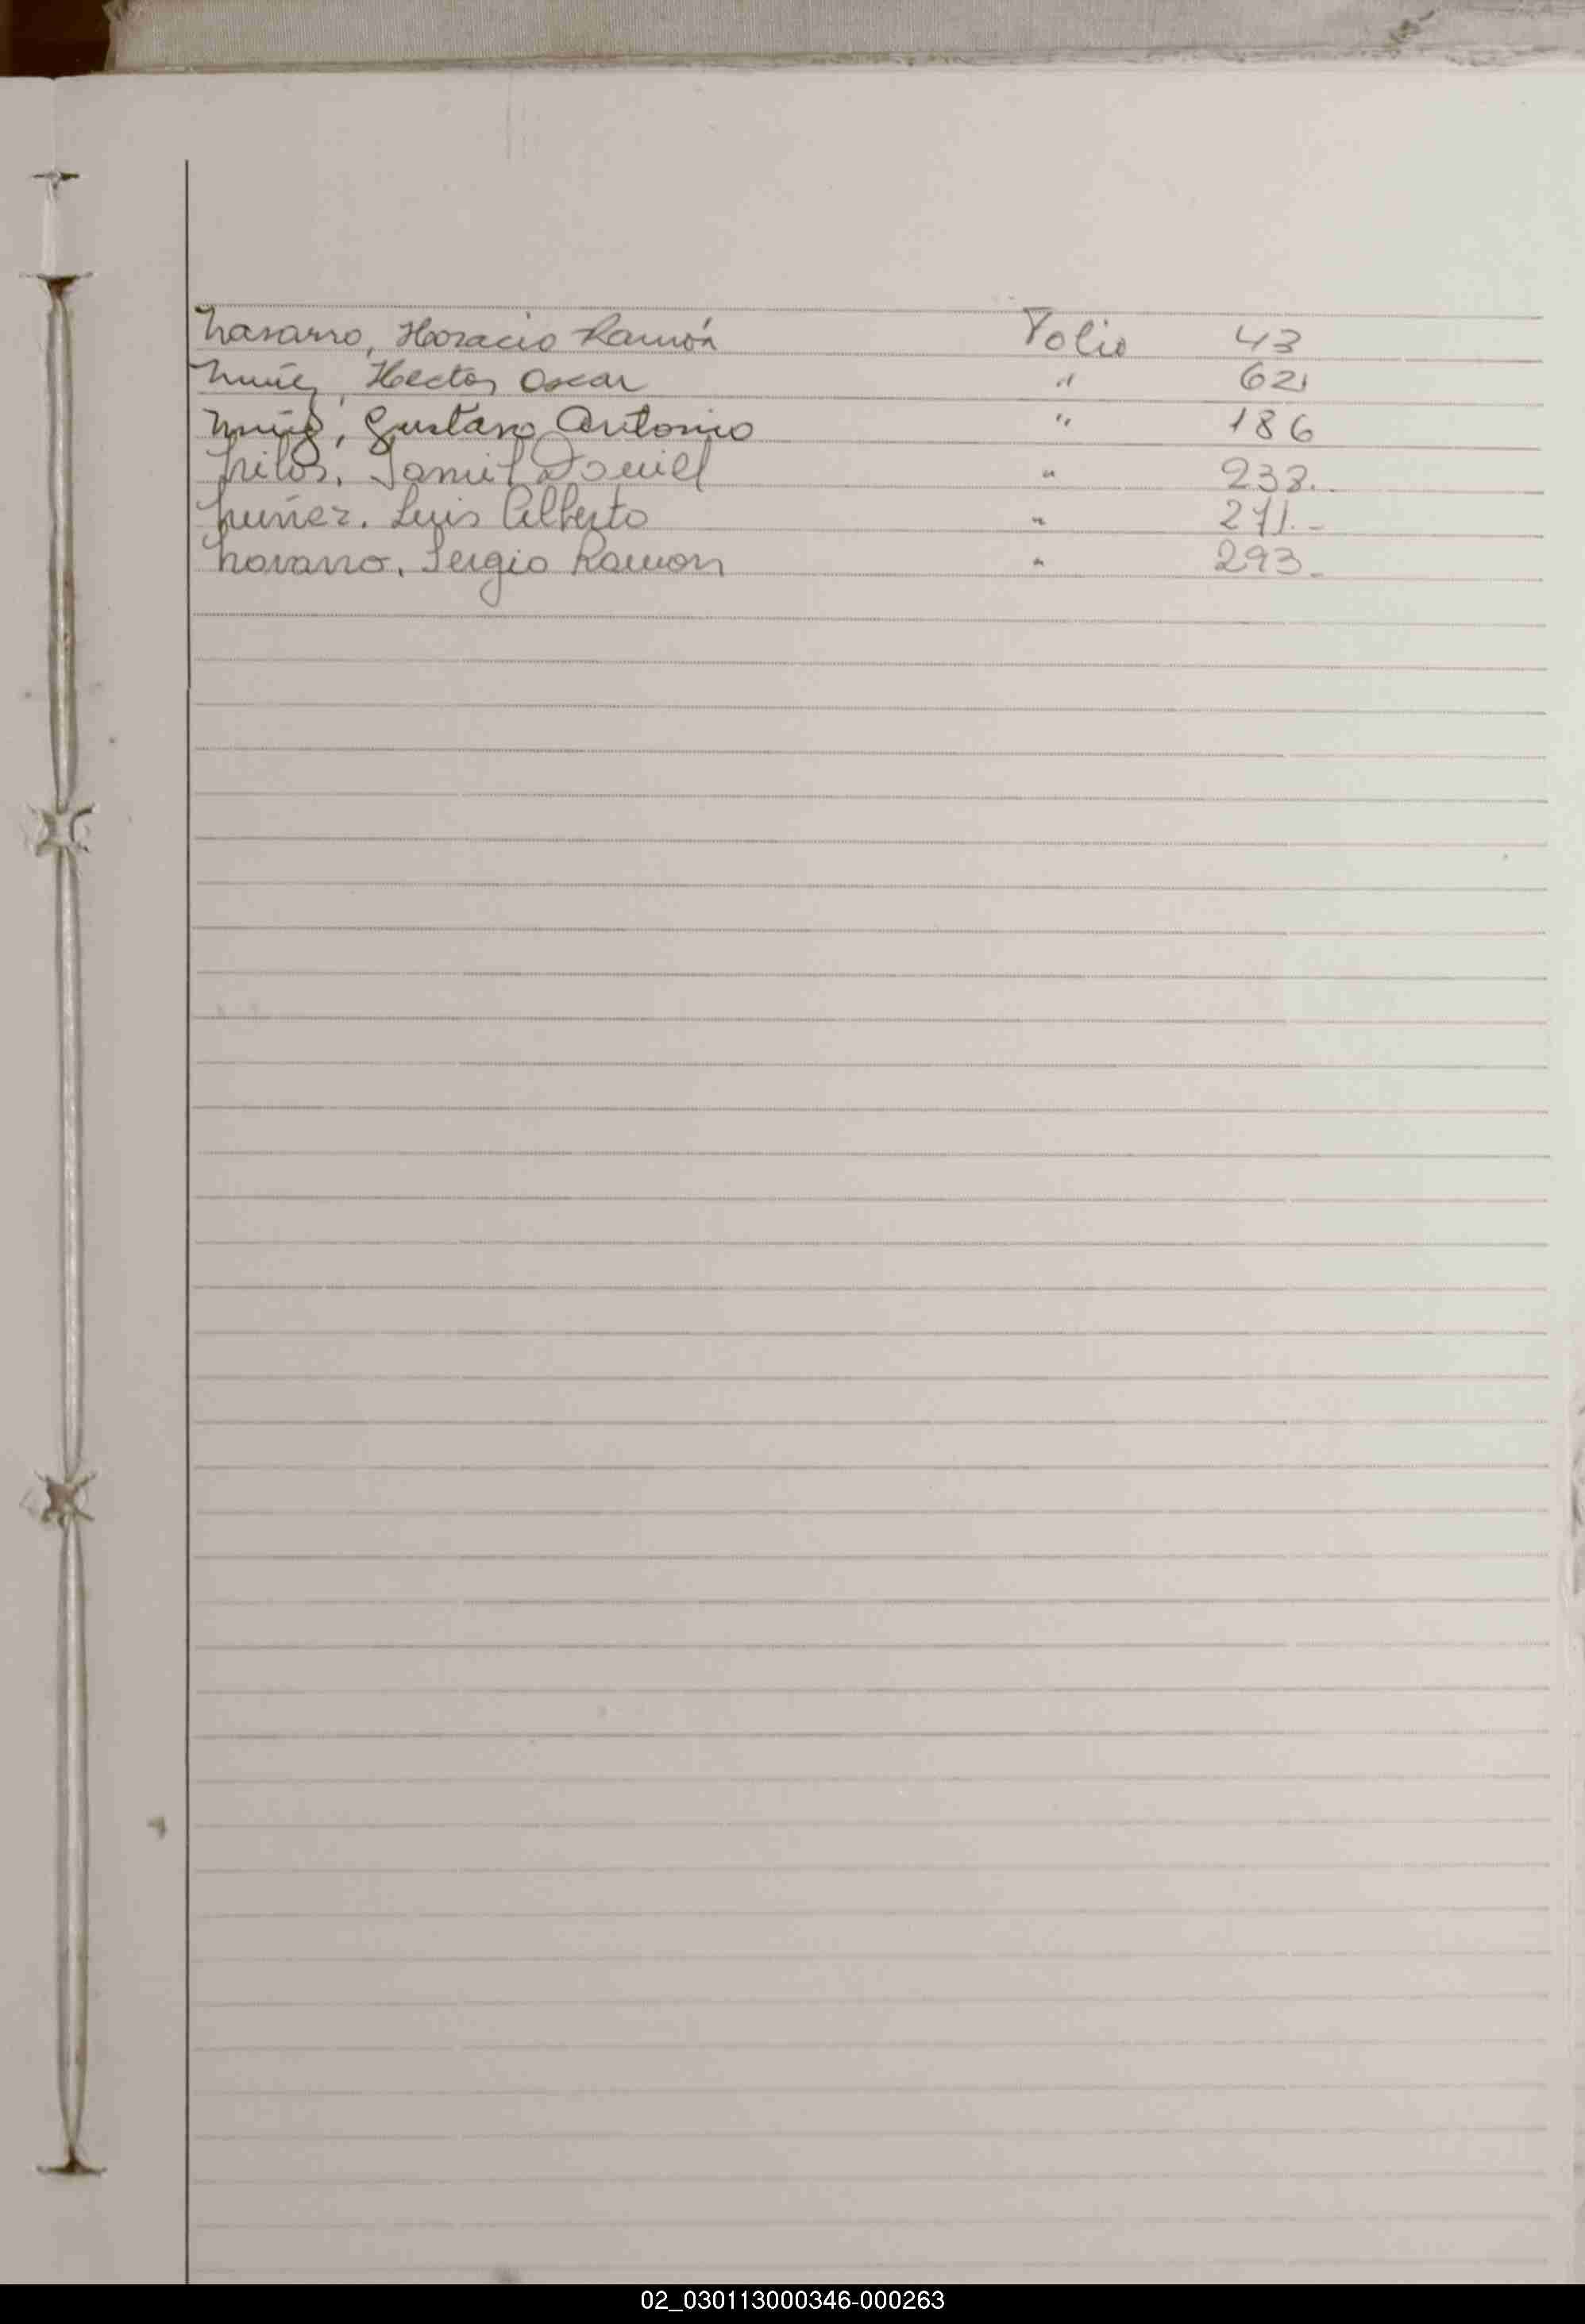 Navarro, Horacio Ramón Folio 43
Nuñez, Hector Oscar " 62
Nuñez, Gustavo Antonio " 186
Daniel " 238.
Nuñez. Luis Alberto " 271.-
Navarro. Sergio Ramon " 293-
02_030113000346-000263